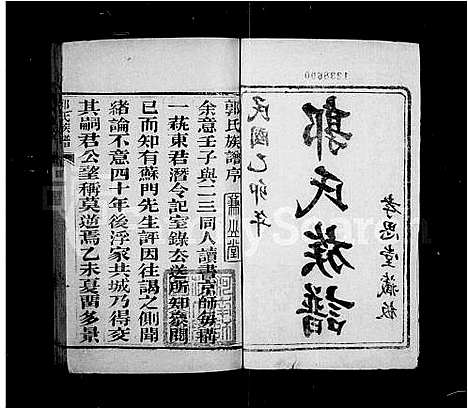 孝思堂藏板
郭氏族譜
民國乙卯年
1338690
郭氏族譜序
余意壬子與二三同人讀書京師每構
一萟東君潛令記室錄去送所知
已而知有蘇門先生評因往謁之側聞
緒論不意四十年後浮家共城乃得交
其嗣君公望稱莫逆焉乙未夏雨多景
郭氏族譜